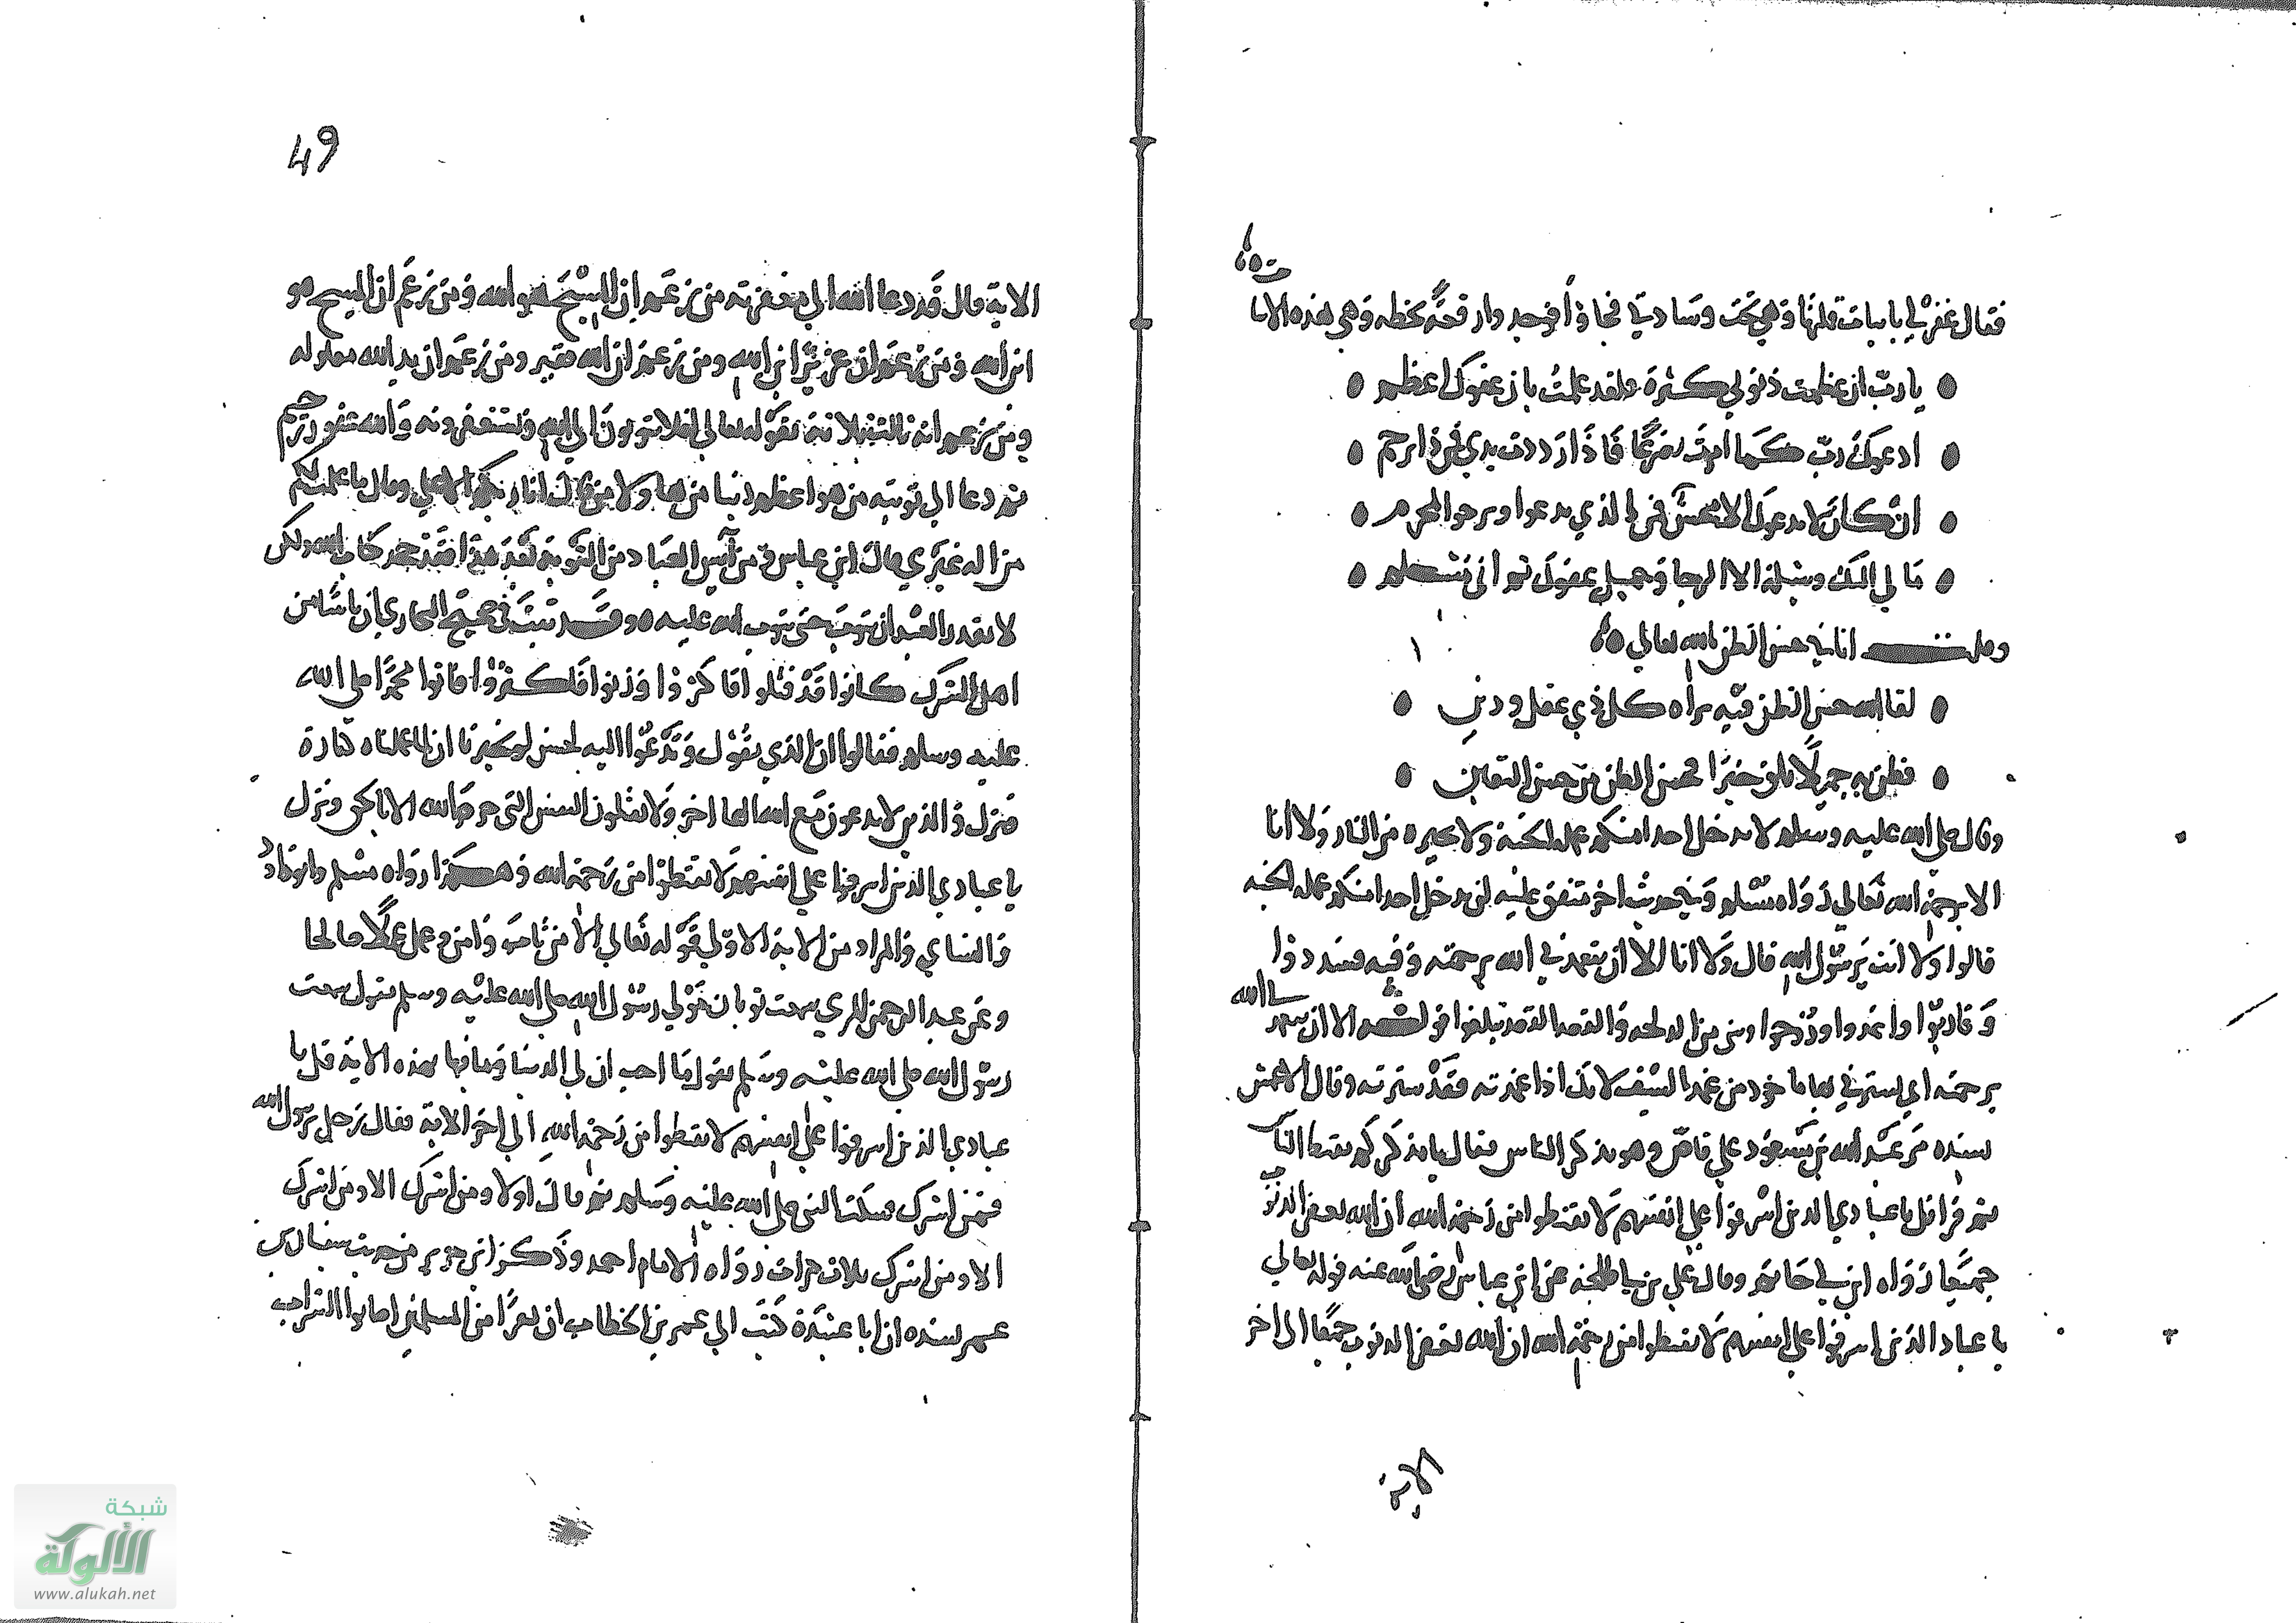 فقال غفر لي بابيات قلتها وهي تحت وسادتي فجاؤا فوجدوا رقعة بخطه وهي هذه الابيات
يا رب ان عظمت ذنوبي كثرة فلقد علمت بان عفوك اعظم
ادعوك رب كما امرت تضرعا فاذا رددت يدي فمن ذا يرحم
ان كان لا يدعوك الا محسن فمن الذي يدعوا ويرجوا المجرم
ما لي اليك وسيلة الا الرجا وجميل عفوك ثم اني مسلم
وقلت انا في حسن الظن بالله تعالى
لقا الله حسن الظن فيه يراه كل ذي عقل ودين
فظن به جميلا تلق خيرا فحسن الظن من حسن اليقين
وقال صلى الله عليه وسلم لا يدخل احدا منكم عمله الجنة ولا يجيره من النار ولا انا
الا برحمة الله تعالى رواه مسلم وفي حديث اخر متفق عليه لن يدخل احدا منكم عمله الجنه
قالوا ولا انت يرسول الله قال ولا انا الا ان يتغمدني الله برحمته وفيه فسددوا
وقاربوا واغدوا وروحوا وشي من الدلجه والقصد القصد تبلغوا قوله الا ان يتغمدني الله
برحمته اي يسترني بها ماخود من غمد السيف لانك اذا غمدته فقد سترته وقال الاعمش
بسنده مر عبد الله بن مسعود على قاص وهو يذكر الناس فقال يا مذكر لم تقنط الناس
ثم قرا قل يا عبادي الدين اسرفوا على انفسهم لا تقنطوا من رحمة الله ان الله يغفر الذنوب
جميعا رواه ابن ابي حاتم وقال علي بن ابي طلحة عن ابن عباس رضي الله عنه قوله تعالى
يا عباد الذين اسرفوا على انفسهم لا تقنطوا من رحمة الله ان الله يغفر الذنوب جميعا الى اخر
الاية
49
الاية قال قد دعا الله الى مغفرته من زعم ان المسيح هو الله ومن زعم ان المسيح هو
ابن الله ومن زعم ان عزيرا ابن الله ومن زعم ان الله فقير ومن زعم ان يد الله مغلوله
ومن زعم انه ثالث ثلاثة بقوله تعالى افلا يتوبون الى الله ويستغفرونه والله غفور رحيم
ثم دعا الى توبته من هو اعظم ذنبا من هاولا من قال انا ربكم الاعلى وقال ما علمت لكم
من اله غيري قال ابن عباس من آيس العباد من التوبة بعد هذا فقد جحد كتاب الله ولكن
لا يقدر العبد ان يتوب حتى يتوب الله عليه وقد ثبت في صحيح البخاري ان ناسا من
اهل الشرك كانوا قد قتلوا فاكثروا وزنوا فاكثروا فاتوا محمدا صلى الله
عليه وسلم فقالوا ان الذي يقول وتدعوا اليه لحسن لو تخبرنا ان لما عملناه كفارة
فنزل والذين لا يدعون مع الله الها اخر ولا يقتلون النفس التي حرم الله الا بالحق ونزل
يا عبادي الذين اسرفوا على انفسهم لا تقنطوا من رحمة الله وهكذا رواه مسلم وابو داود
والنساي والمراد من الاية الاولى قوله تعالى الا من تاب وامن وعمل عملا صالحا
وعن عبد الرحمن المري سمعت ثوبان مولى رسول الله صلى الله عليه وسلم يقول سمعت
رسول الله صلى الله عليه وسلم يقول ما احب ان لي الدنيا وما فيها بهذه الاية قل يا
عبادي الذين اسرفوا على انفسهم لا تقنطوا من رحمة الله الى اخر الاية فقال رجل يرسول الله
فمن اشرك فسكت النبي صلى الله عليه وسلم ثم قال اولا ومن اشرك الا ومن اشرك
الا ومن اشرك ثلاث مرات رواه الامام احمد وذكر ابن جرير من حديث سفيان بن
بسنده ان ابا عبيدة كتب الى عمر بن الخطاب ان نفرا من المسلمين اصابوا الشراب
شبكة
الألوكة
www.alukah.net